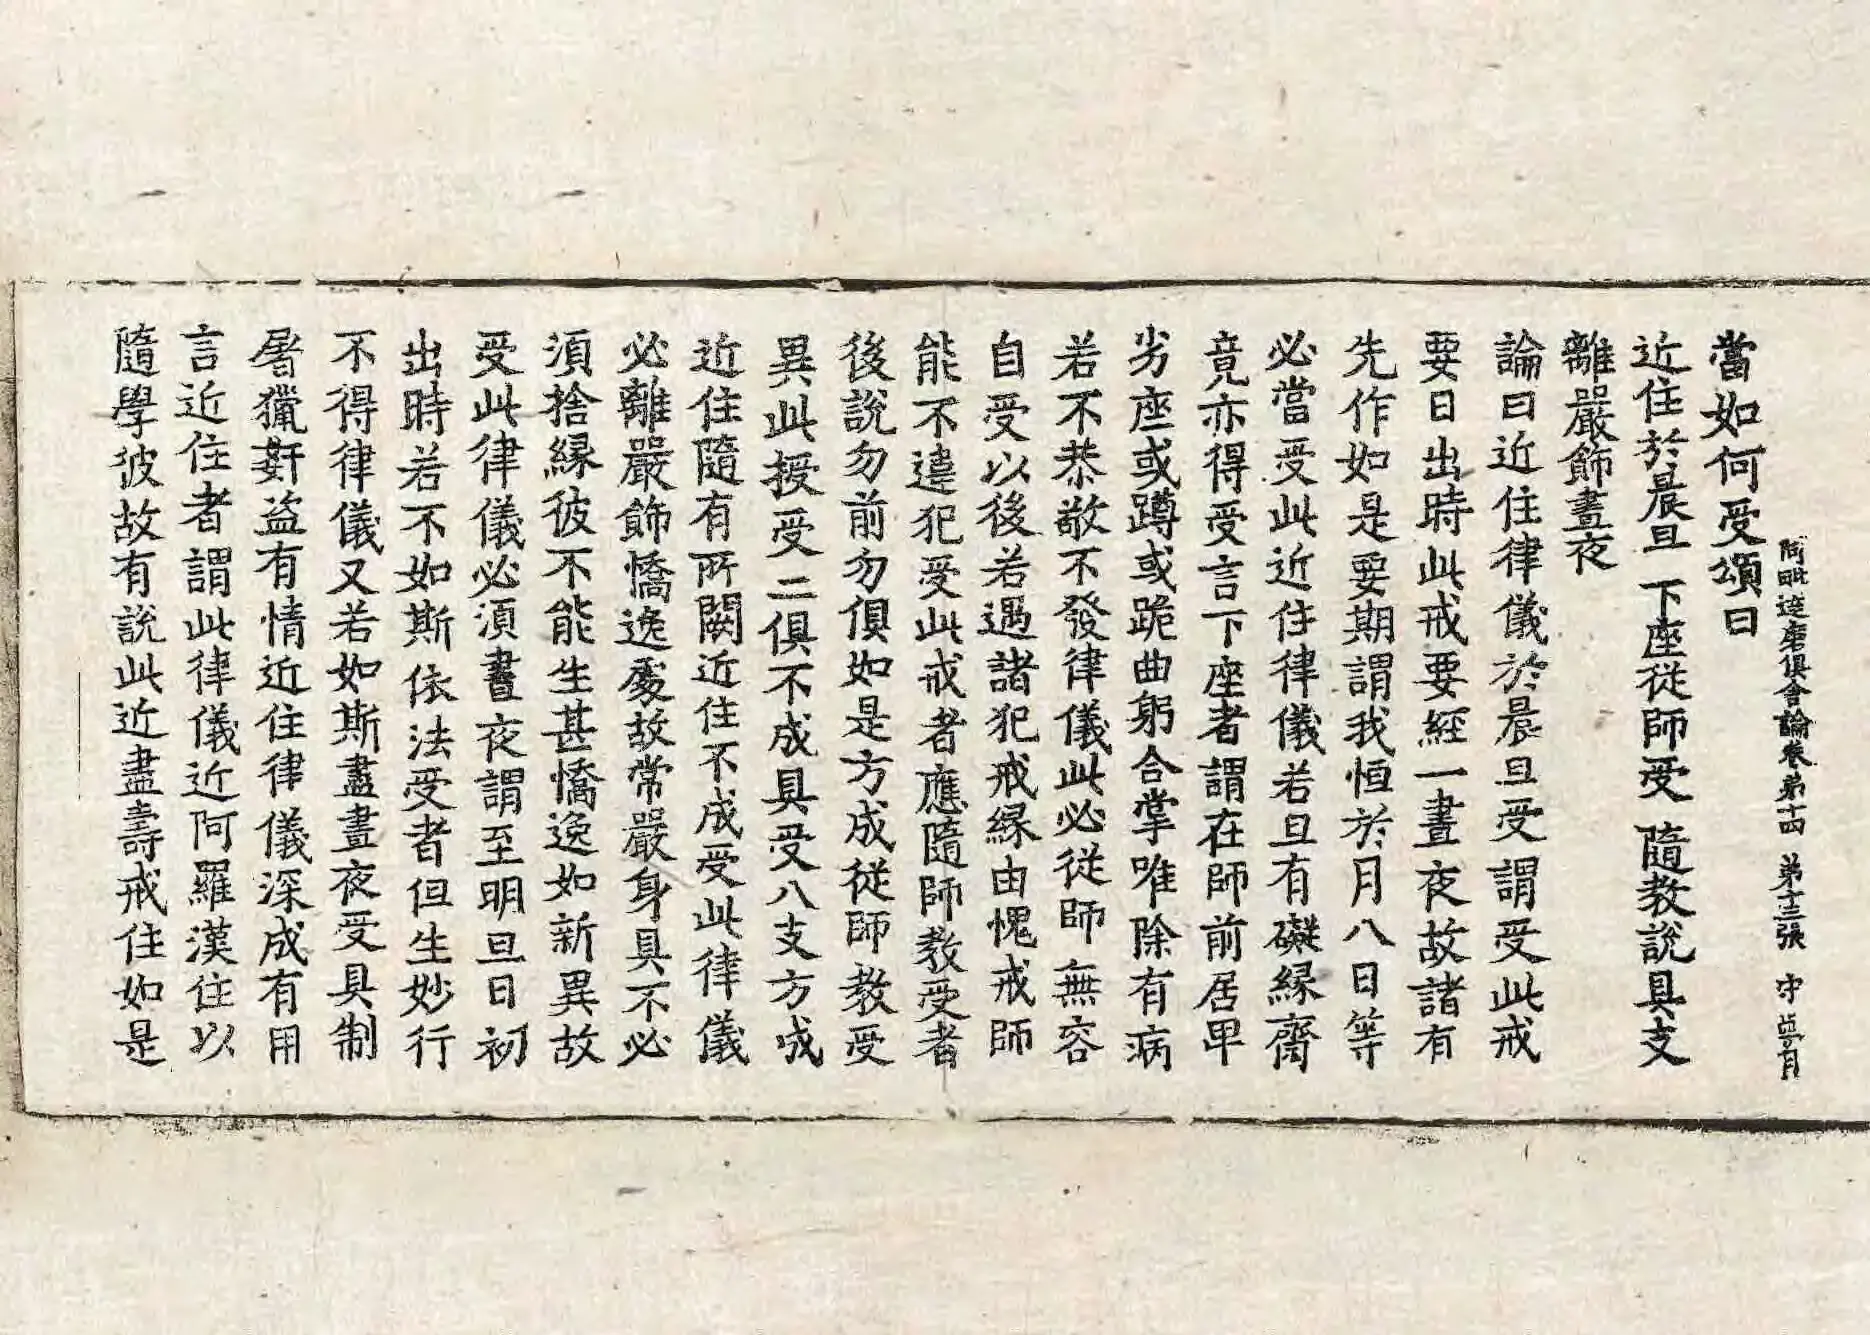 阿毗達磨俱舍論卷第十四 第十三張 守
當如何受頌曰
近住於晨旦 下座從師受 隨教說具支
離嚴飾晝夜
論曰近住律儀於晨旦受謂受此戒
要日出時此戒要經一晝夜故諸有
先作如是要期謂我恒於月八日等
必當受此近住律儀若旦有礙緣齋
竟亦得受言下座者謂在師前居卑
劣座或蹲或跪曲躬合掌唯除有病
若不恭敬不發律儀此必從師無容
自受以後若遇諸犯戒緣由愧戒師
能不違犯受此戒者應隨師教受者
後說勿前勿俱如是方成從師教受
異此授受二俱不成具受八支方成
近住隨有所闕近住不成受此律儀
必離嚴飾憍逸處故常嚴身具不必
須捨緣彼不能生甚憍逸如新異故
受此律儀必須晝夜謂至明旦日初
出時若不如斯依法受者但生妙行
不得律儀又若如斯盡晝夜受具制
屠獵姧盜有情近住律儀深成有用
言近住者謂此律儀近阿羅漢住以
隨學彼故有說此近盡壽戒住如是